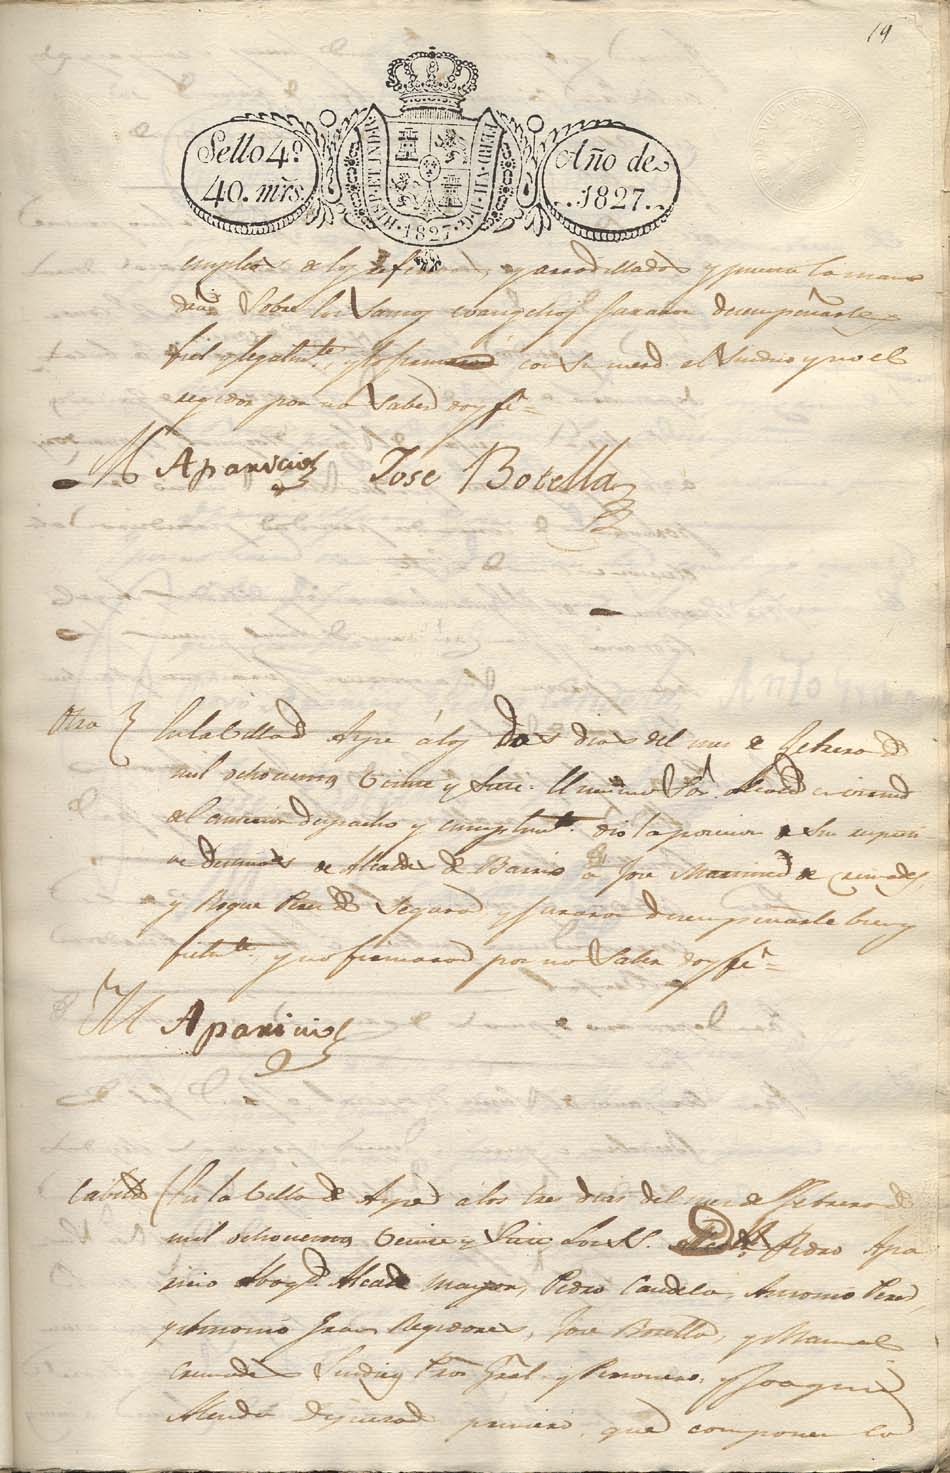 19
Sello 4º
40. mrs.
HISP. ET IND. R.
FERD. VII. D. G.
1827
Año de
1827.
empleos de los y arrodillados y puesta la mano
dra. Sobre los Santos evangelios juraron desempeñarle
fiel y legalmte. y lo firmaron con Su merd. el Sindico y no el
regidor por no Saber doy fe =
Aparicio
Jose Botella
Otra
En la Villa de Aspe á los dos dias del mes de Febrero de
mil ochocientos Veinte y Siete. El mismo Sor. Alcalde en virtud
del anterior despacho y cumplimto. dio la posecion de Sus respecti
vos destinos de Alcaldes de Barrio a Jose Martinez de Cremades,
y Roque Perez de Segura y juraron desempeñarle bien y
fielmte. y no firmaron por no Saber doy fe =
Aparicio
Cabildo
En la Villa de Aspe a los tres dias del mes de Febrero de
mil ochocientos Veinte y Siete Los SS. Pedro Apa
ricio Abogdo. Alcalde mayor, Pedro Candela, Antonio Perez,
y Antonio Gras Regidores, Jose Botella, y Manuel
Cremades Sindico Pror. Gral. y Personero, y Joaquin
Alenda Diputado primero, que componen la